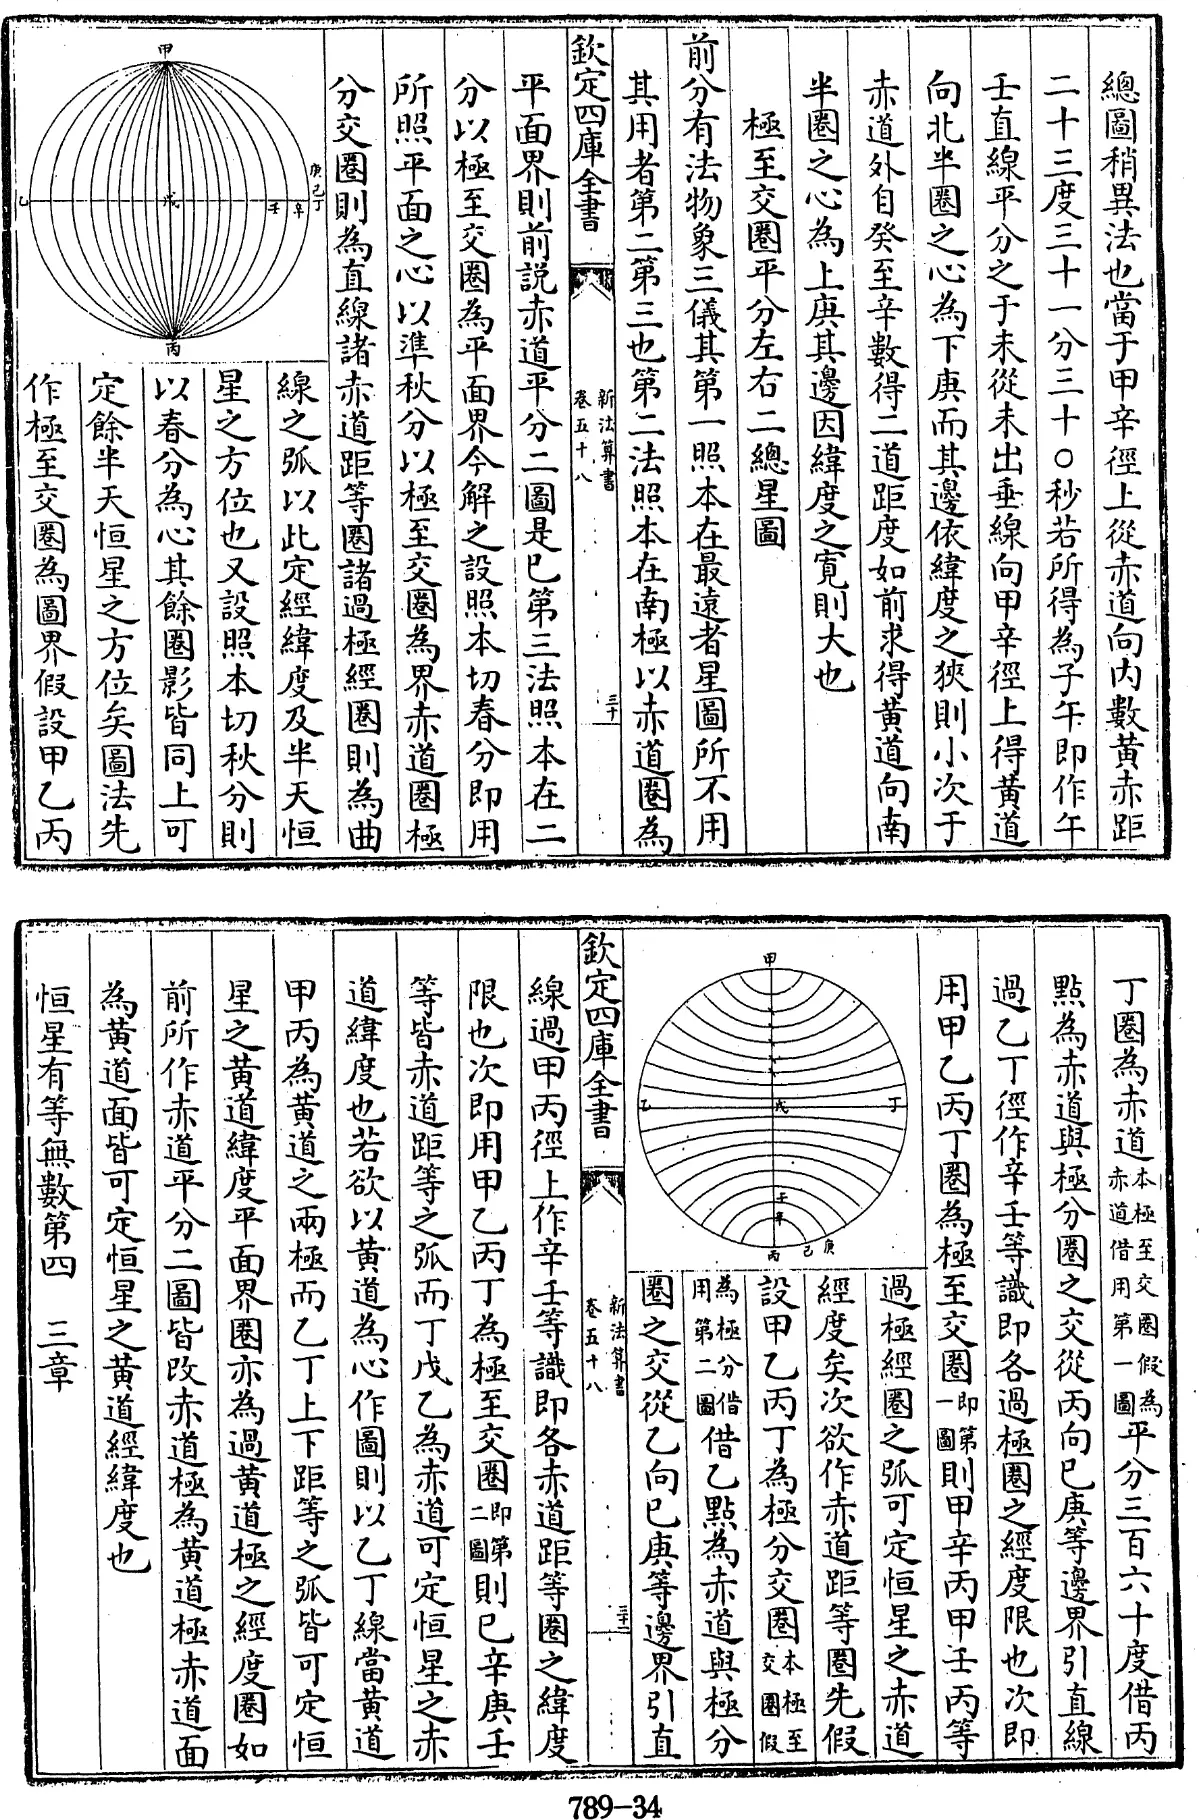 總圖稍異法也當于甲辛徑上從赤道向内數黄赤距
二十三度三十一分三十〇秒若所得為子午即作午
壬直線平分之于未從未出垂線向甲辛徑上得黄道
向北半圈之心為下庚而其邊依緯度之狹則小次于
赤道外自癸至辛數得二道距度如前求得黄道向南
半圈之心為上庚其邊因緯度之寛則大也
極至交圈平分左右二總星圖
前分有法物象三儀其第一照本在最遠者星圖所不用
其用者第二第三也第二法照本在南極以赤道圈為
欽定四庫全書
新法算書
卷五十八
三十
平面界則前説赤道平分二圖是已第三法照本在二
分以極至交圈為平面界今解之設照本切春分即用
所照平面之心以準秋分以極至交圈為界赤道圈極
分交圈則為直線諸赤道距等圈諸過極經圈則為曲
線之弧以此定經緯度及半天恒
星之方位也又設照本切秋分則
以春分為心其餘圈影皆同上可
定餘半天恒星之方位矣圖法先
作極至交圈為圖界假設甲乙丙
甲
乙
戊
壬
辛
庚
己
丁
丙
丁圈為赤道本極至交圈假為赤道借用第一圖平分三百六十度借丙
點為赤道與極分圈之交從丙向已庚等邊界引直線
過乙丁徑作辛壬等識即各過極圈之經度限也次即
用甲乙丙丁圈為極至交圈即第一圖則甲辛丙甲壬丙等
過極經圈之弧可定恒星之赤道
經度矣次欲作赤道距等圈先假
設甲乙丙丁為極分交圈本極至交圈假
為極分借用第二圖借乙點為赤道與極分
圈之交從乙向已庚等邊界引直
甲
乙
戊
丁
壬
辛
丙
己
庚
欽定四庫全書
新法算書
卷五十八
三十一
線過甲丙徑上作辛壬等識即各赤道距等圈之緯度
限也次即用甲乙丙丁為極至交圈即第二圖則已辛庚壬
等皆赤道距等之弧而丁戊乙為赤道可定恒星之赤
道緯度也若欲以黄道為心作圖則以乙丁線當黄道
甲丙為黄道之兩極而乙丁上下距等之弧皆可定恒
星之黄道緯度平面界圈亦為過黄道極之經度圈如
前所作赤道平分二圖皆改赤道極為黄道極赤道面
為黄道面皆可定恒星之黄道經緯度也
恒星有等無數第四 三章
789-34